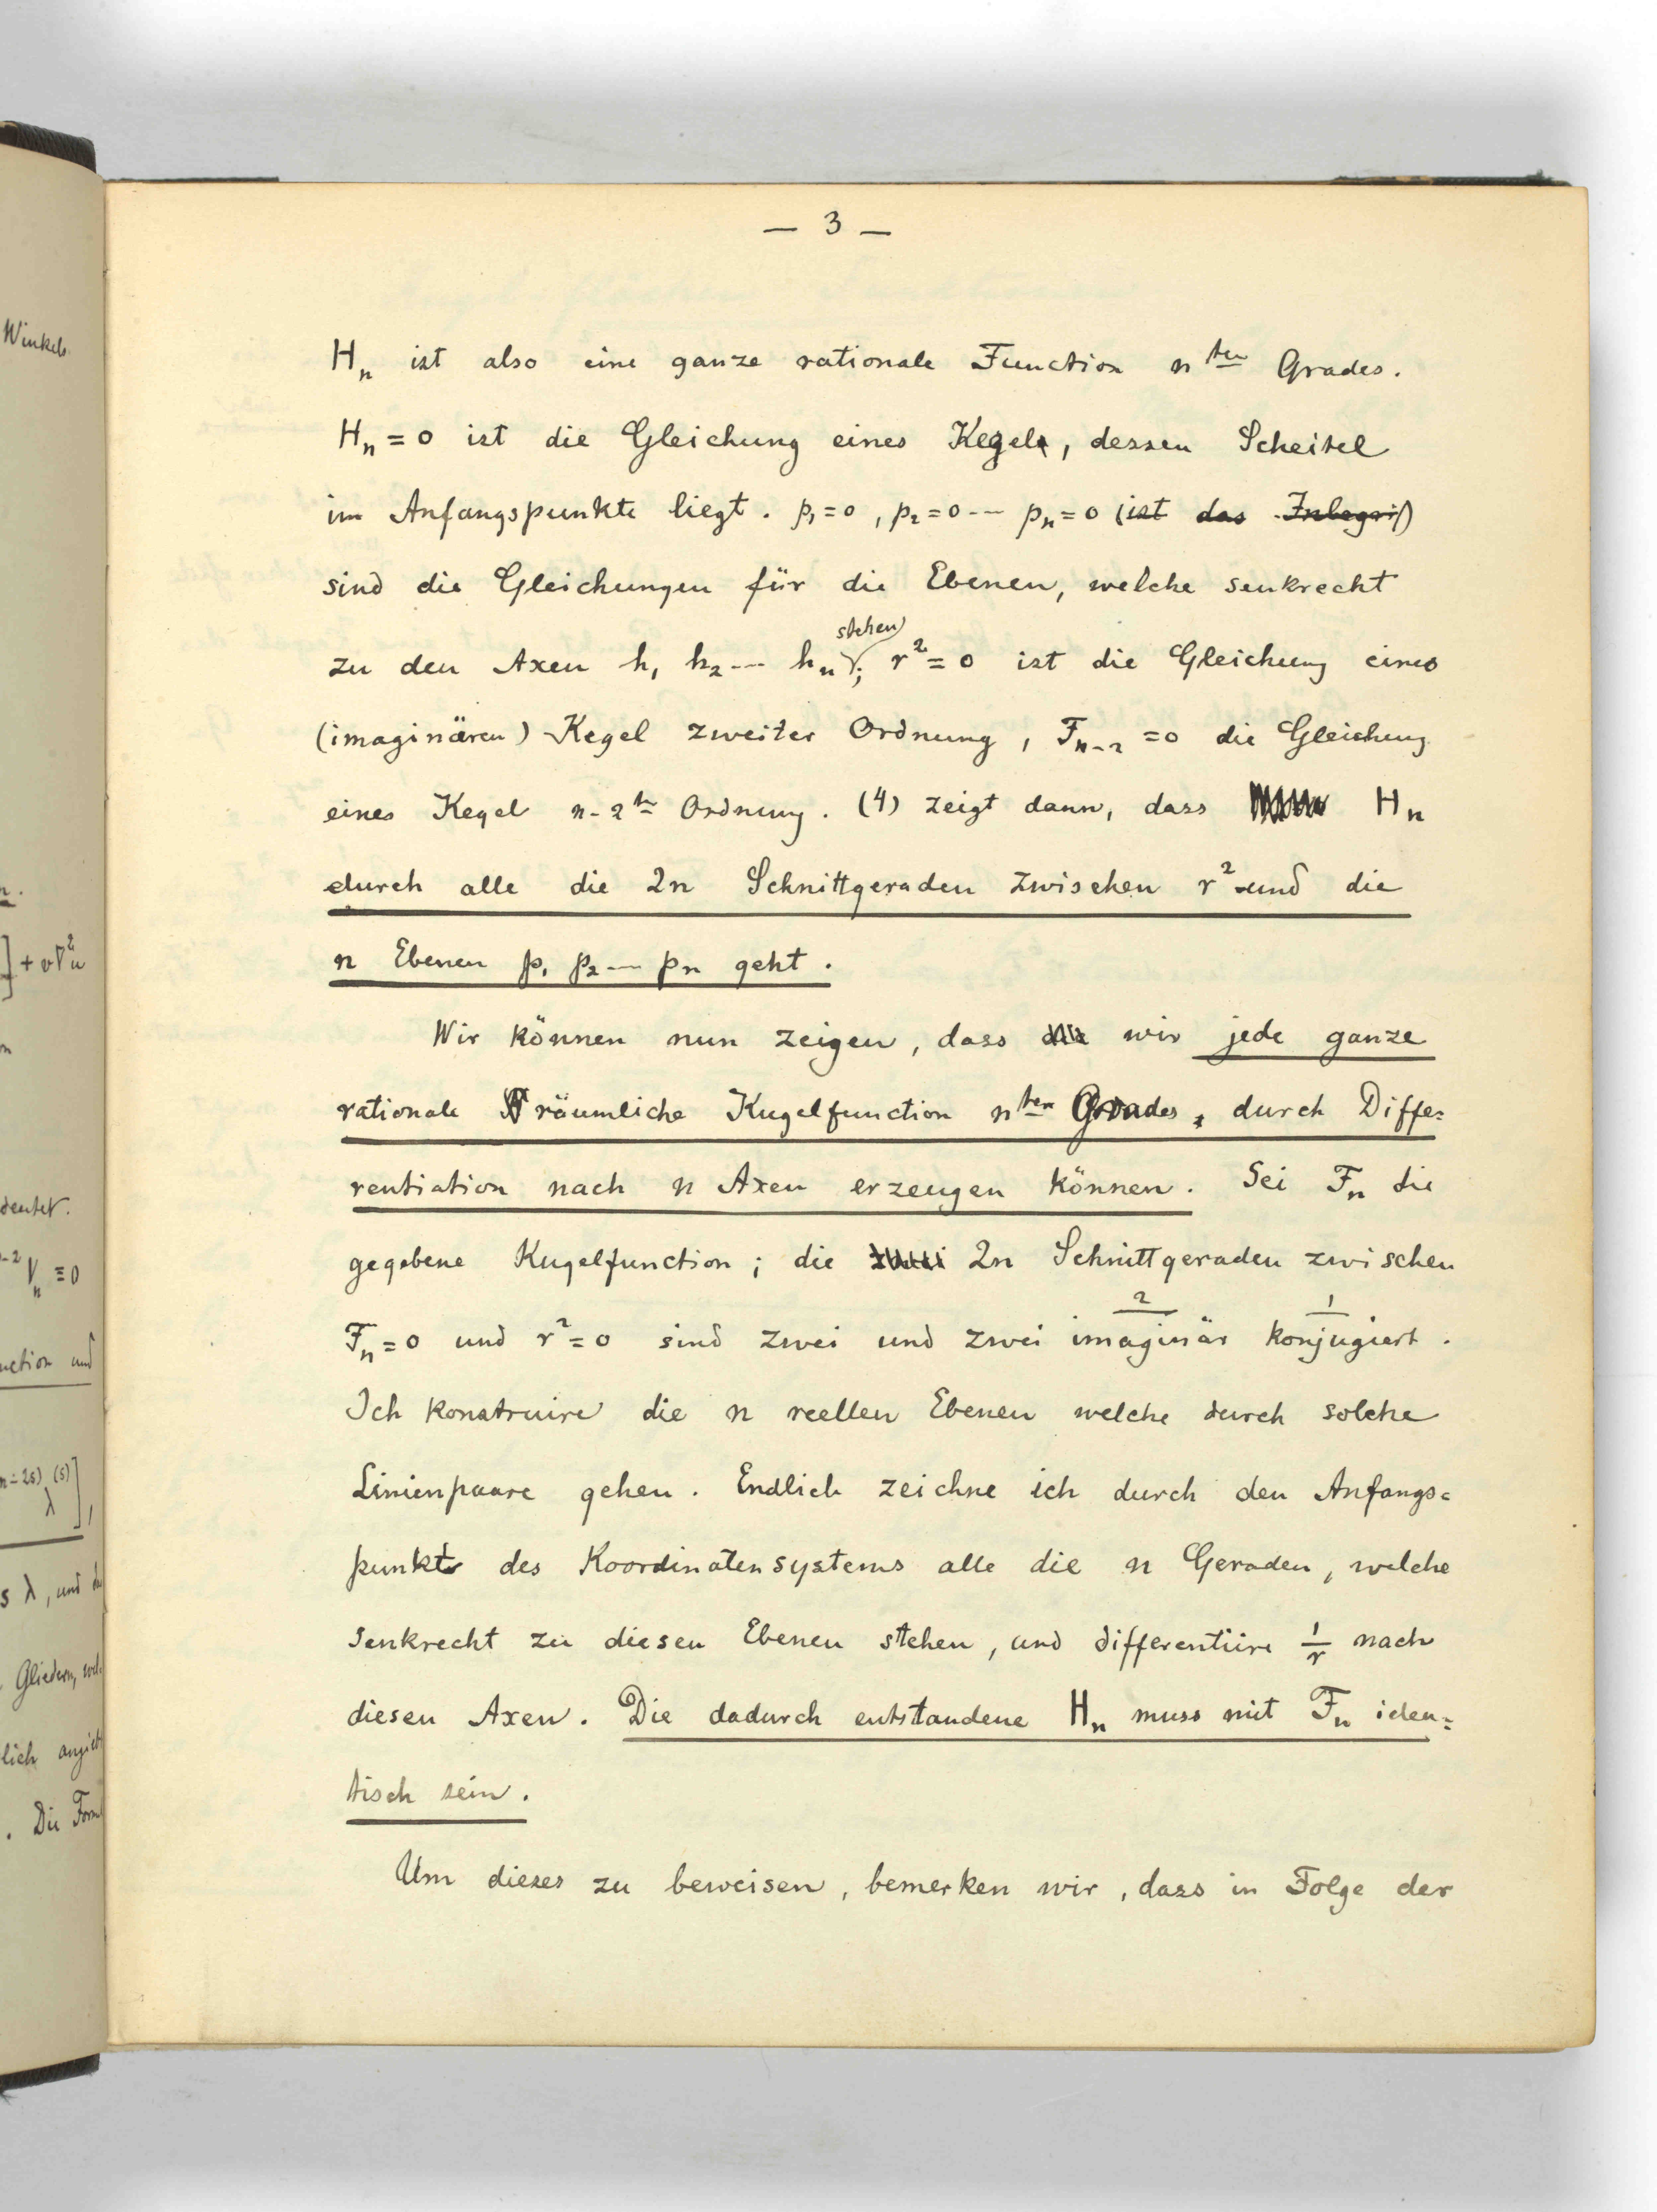 — 3 —
H_n ist also eine ganze rationale Function n^ten Grades.
H_n = 0 ist die Gleichung eines Kegels, dessen Scheitel
im Anfangspunkte liegt. p_1 = 0, p_2 = 0 --- p_n = 0 (ist das Inbegrif)
sind die Gleichungen für die Ebenen, welche senkrecht
stehen
zu den Axen h_1 h_2 --- h_n; r^2 = 0 ist die Gleichung eines
(imaginären) Kegel zweiter Ordnung, F_{n-2} = 0 die Gleichung
eines Kegel n-2^ter Ordnung. (4) zeigt dann, dass H_n
durch alle die 2n Schnittgeraden zwischen r^2 und die
n Ebenen p_1 p_2 --- p_n geht.
Wir können nun zeigen, dass wir jede ganze
rationale räumliche Kugelfunction n^ten Grades, durch Diffe=
rentiation nach n Axen erzeugen können. Sei F_n die
gegebene Kugelfunction; die zwei 2n Schnittgeraden zwischen
2 1
F_n = 0 und r^2 = 0 sind zwei und zwei imaginär konjugiert.
Ich konstruire die n reellen Ebenen welche durch solche
Linienpaare gehen. Endlich zeichne ich durch den Anfangs=
punkt des Koordinatensystems alle die n Geraden, welche
senkrecht zu diesen Ebenen stehen, und differentiire 1/r nach
diesen Axen. Die dadurch entstandene H_n muss mit F_n iden=
tisch sein.
Um dieses zu beweisen, bemerken wir, dass in Folge der
Winkels
] + v∇^2u
deutet.
V_n ≡ 0
(n-2s) (s)
λ ],
s λ, und
Gliedern,
lich
. Die